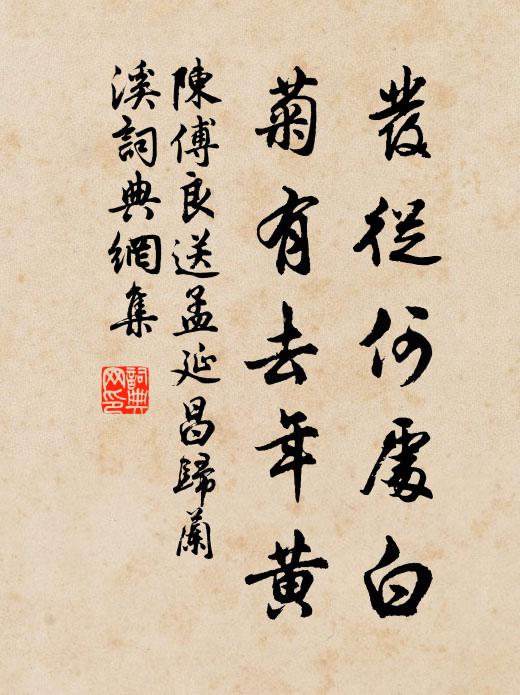 發從何處白
菊有去年黃
陳傅良送孟延昌歸蘭
溪詞典網集
詞典网印